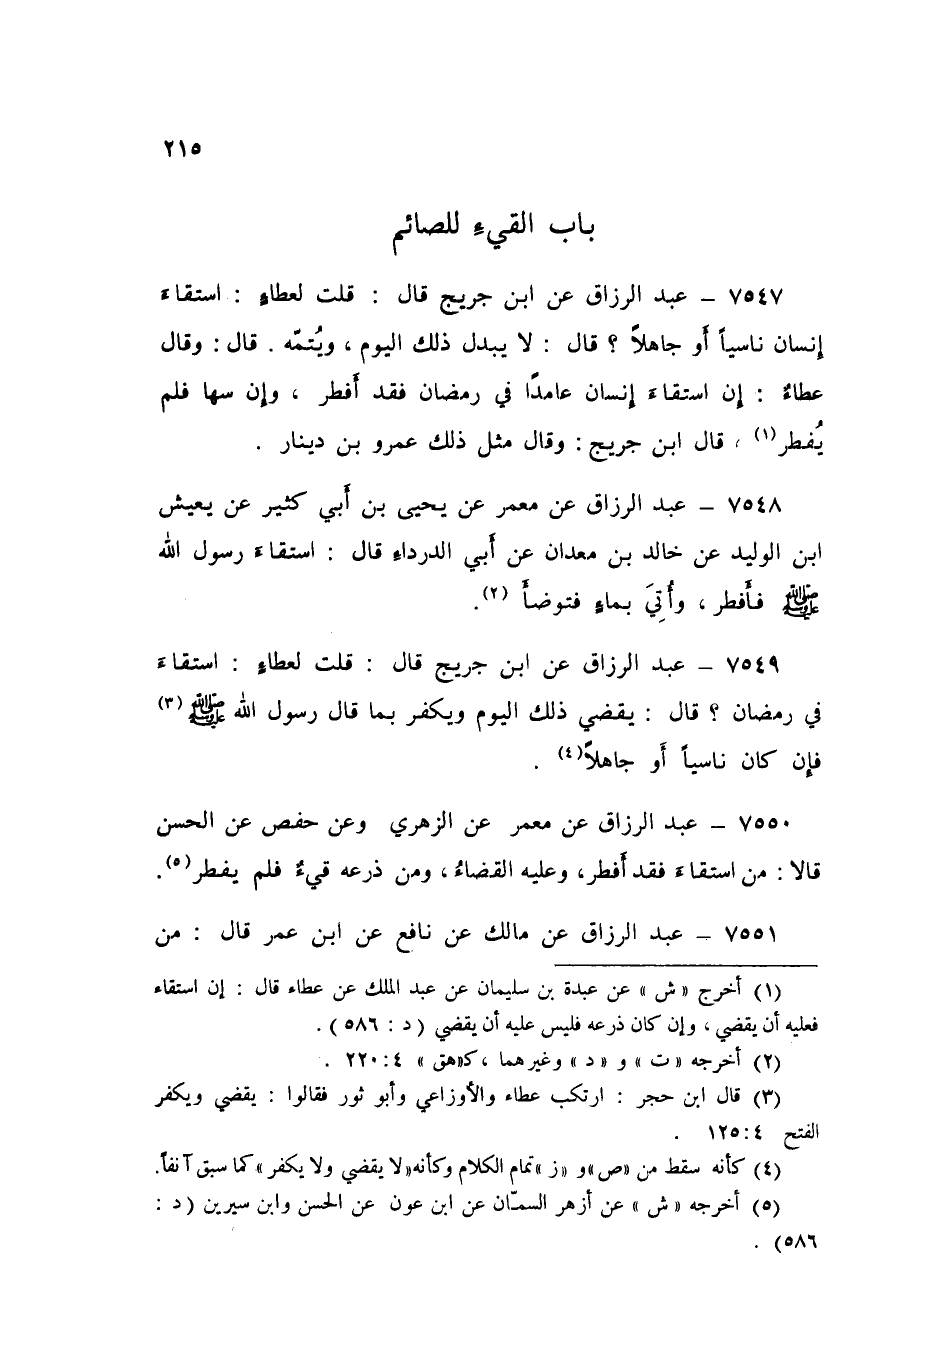 ٢١٥
باب القيء للصائم
٧٥٤٧ – عبد الرزاق عن ابن جريج قال : قلت لعطاءٍ : استقاءَ
إنسان ناسياً أَو جاهلاً ؟ قال : لا يبدل ذلك اليوم ، ويُتمّه . قال : وقال
عطاءٌ : إن استقاءَ إنسان عامدًا في رمضان فقد أَفطر ، وإن سها فلم
يُفطر (١) ، قال ابن جريج : وقال مثل ذلك عمرو بن دينار .
٧٥٤٨ – عبد الرزاق عن معمر عن يحيى بن أَبي كثير عن يعيش
ابن الوليد عن خالد بن معدان عن أَبي الدرداءِ قال : استقاءَ رسول الله
ﷺ فأَفطر ، وأُتِيَ بماءٍ فتوضأَ (٢).
٧٥٤٩ – عبد الرزاق عن ابن جريج قال : قلت لعطاءٍ : استقاءَ
في رمضان ؟ قال : يقضي ذلك اليوم ويكفر بما قال رسول الله ﷺ (٣)
فإن كان ناسياً أَو جاهلاً(٤) .
٧٥٥٠ – عبد الرزاق عن معمر عن الزهري وعن حفص عن الحسن
قالا : من استقاءَ فقد أَفطر، وعليه القضاءُ، ومن ذرعه قيءٌ فلم يفطر(٥).
٧٥٥١ – عبد الرزاق عن مالك عن نافع عن ابن عمر قال : من
(١) أخرج « ش » عن عبدة بن سليمان عن عبد الملك عن عطاء قال : إن استقاء
فعليه أن يقضي ، وإن كان ذرعه فليس عليه أن يقضي ( د : ٥٨٦ ) .
(٢) أخرجه « ت » و « د » وغيرهما ، كـ«هق » ٤ : ٢٢٠ .
(٣) قال ابن حجر : ارتكب عطاء والأوزاعي وأبو ثور فقالوا : يقضي ويكفر
الفتح ٤ : ١٢٥ .
(٤) كأنه سقط من «ص»و «ز »تمام الكلام وكأنه«لا يقضي ولا يكفر »كما سبق آنفاً.
(٥) أخرجه « ش » عن أزهر السمّان عن ابن عون عن الحسن وابن سيرين ( د :
٥٨٦) .